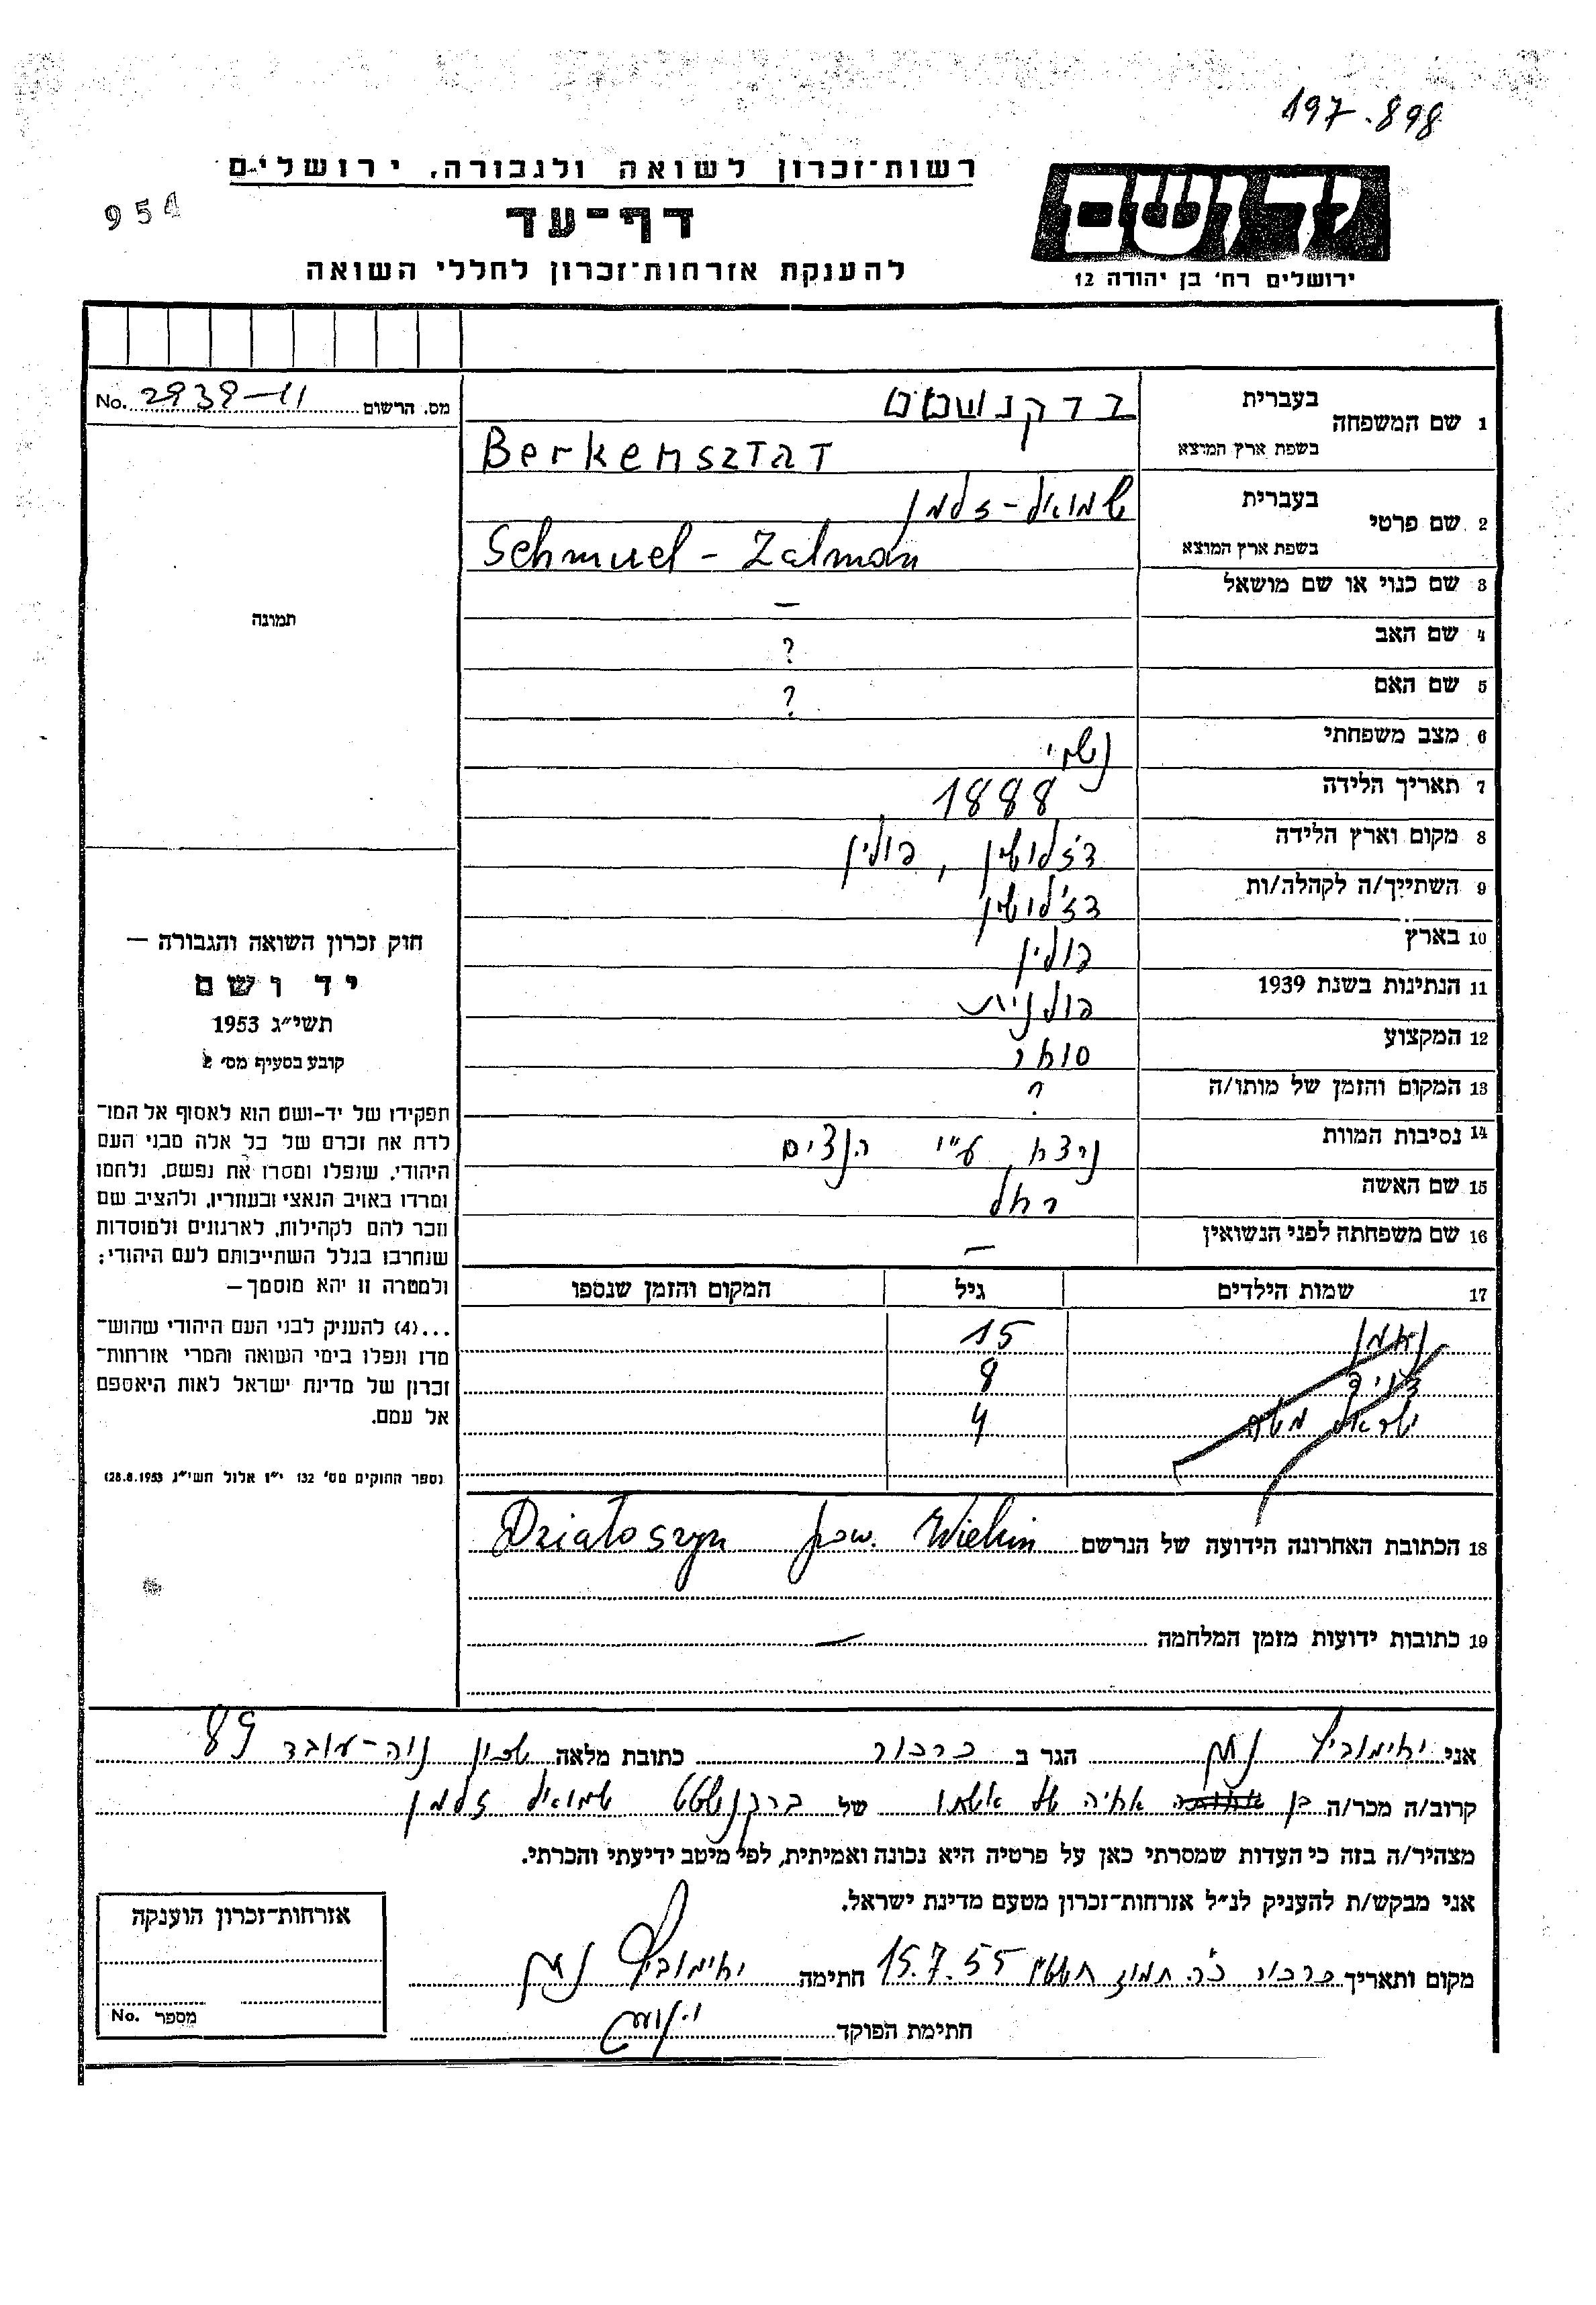 197.898
רשות־זכרון לשואה ולגבורה, ירושלים
954
דף־עד
להענקת אזרחות־זכרון לחללי השואה
יד ושם
ירושלים רח' בן יהודה 12
מס. הרשום No. 2939-11
1 שם המשפחה בעברית ברקנשטט
בשפת ארץ המוצא Berkensztat
2 שם פרטי בעברית שמואל-זלמן
בשפת ארץ המוצא Schmuel - Zalman
3 שם כנוי או שם מושאל —
4 שם האב ?
5 שם האם ?
6 מצב משפחתי נשוי
7 תאריך הלידה 1888
8 מקום וארץ הלידה דזלושין, פולין
9 השתייך/ה לקהלה/ות דז'לושין
10 בארץ פולין
11 הנתינות בשנת 1939 פולנית
12 המקצוע סוחר
13 המקום והזמן של מותו/ה ?
14 נסיבות המוות נרצח ע"י הנצים
15 שם האשה רחל
16 שם משפחתה לפני הנשואין —
17 שמות הילדים גיל המקום והזמן שנספו
15
8
ישראל משה 4
18 הכתובת האחרונה הידועה של הנרשם Działoszyn pow. Wielun
19 כתובות ידועות מזמן המלחמה —
תמונה
חוק זכרון השואה והגבורה —
יד ושם
תשי"ג 1953
קובע בסעיף מס' 2
תפקידו של יד-ושם הוא לאסוף אל המו־
לדת את זכרם של כל אלה מבני העם
היהודי, שנפלו ומסרו את נפשם, נלחמו
ומרדו באויב הנאצי ובעוזריו, ולהציב שם
וזכר להם לקהילות, לארגונים ולמוסדות
שנחרבו בגלל השתייכותם לעם היהודי;
ולמטרה זו יהא מוסמך —
...(4) להעניק לבני העם היהודי שהוש־
מדו ונפלו בימי השואה והמרי אזרחות־
זכרון של מדינת ישראל לאות היאספם
אל עמם.
(ספר החוקים מס' 132 י"ז אלול תשי"ג 28.8.1953)
אני יאימוביץ נתן הגר ב כרכור כתובת מלאה שכון נוה-עובד 89
קרוב/ה מכר/ה בן אחיה של אשתו של ברקנשטט שמואל זלמן
מצהיר/ה בזה כי העדות שמסרתי כאן על פרטיה היא נכונה ואמיתית, לפי מיטב ידיעתי והכרתי.
אני מבקש/ת להעניק לנ"ל אזרחות־זכרון מטעם מדינת ישראל.
מקום ותאריך כרכור כ"ה תמוז תשט"ו 15.7.55 חתימה יאימוביץ נתן
חתימת הפוקד
אזרחות־זכרון הוענקה
מספר No.